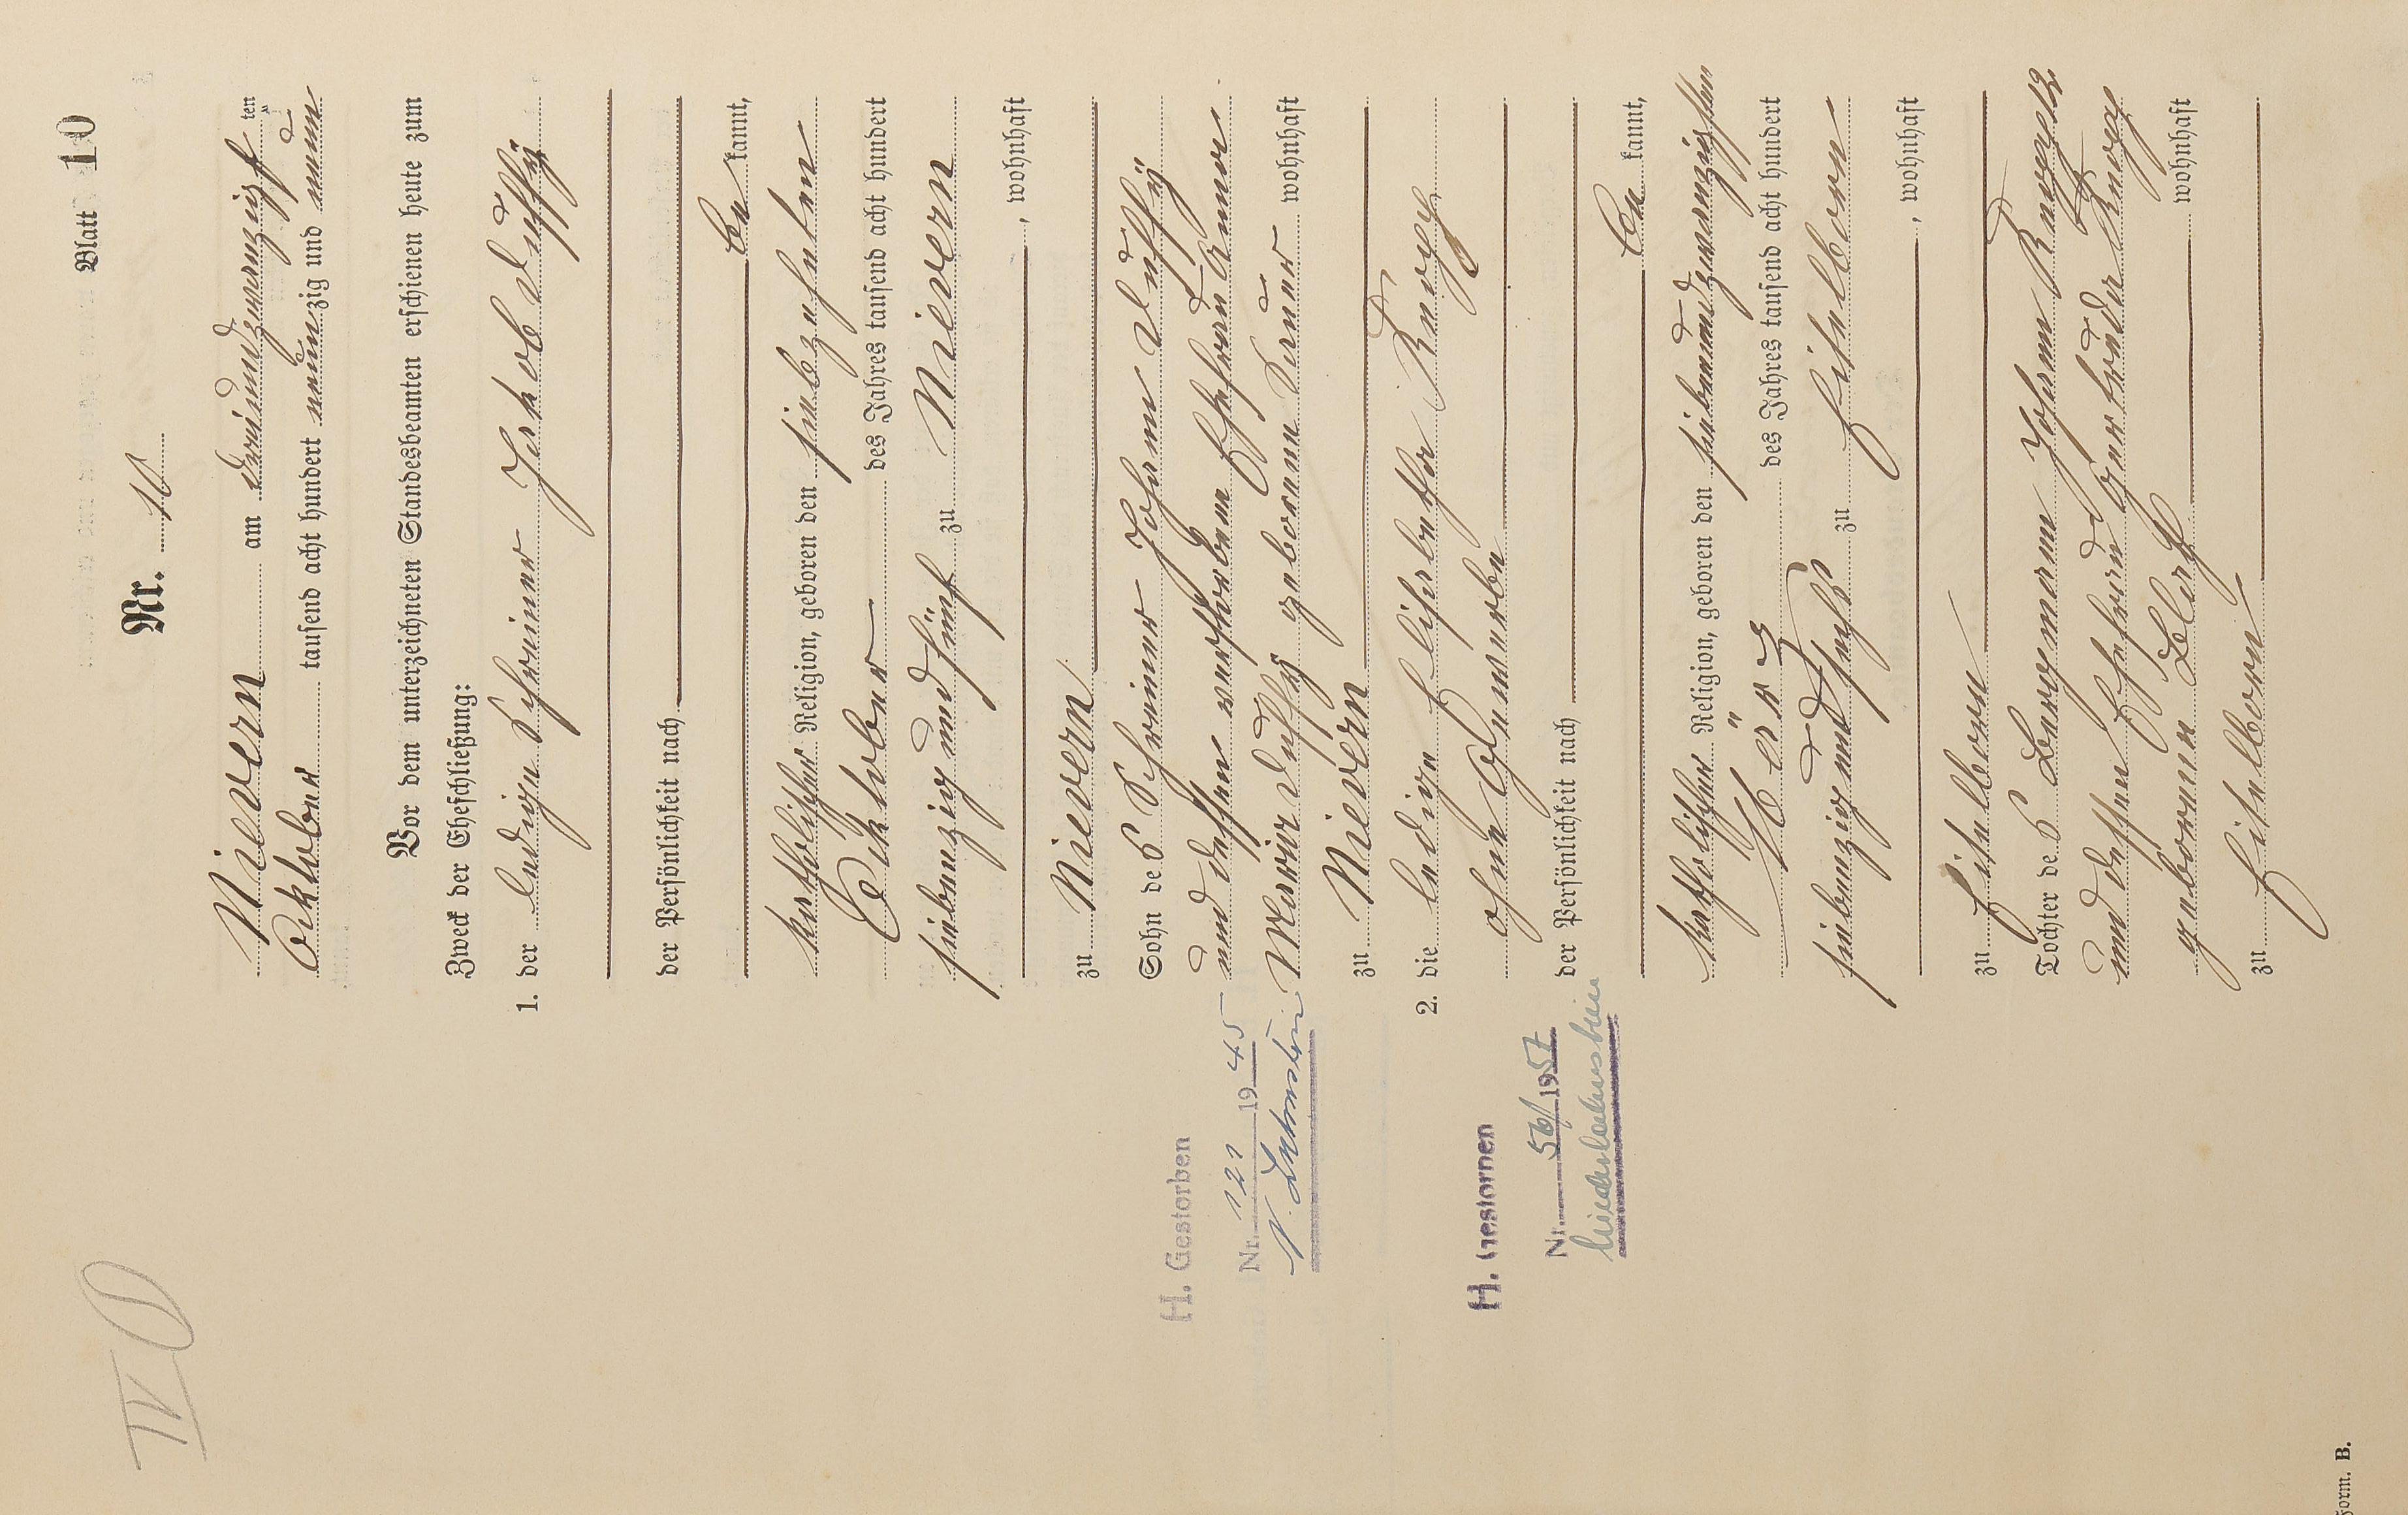 Blatt 10
Nr. 10
Nievern am dreiundzwanzigsten
Oktober tausend acht hundert neunzig und neun
Vor dem unterzeichneten Standesbeamten erschienen heute zum
Zweck der Eheschließung:
1. der ledige Schreiner Jakob
der Persönlichkeit nach
be kannt,
katholischer Religion, geboren den siebzehnten
Oktober des Jahres tausend acht hundert
siebenzig und fünf zu Nievern
, wohnhaft
zu Nievern
Sohn des Schreiner Johann
und dessen verstorbenen Ehefrau Anna
Maria geborene
wohnhaft
zu Nievern
2. die ledige Elisabetha Knopp
ohne Gewerbe
der Persönlichkeit nach
be kannt,
katholischer Religion, geboren den siebenundzwanzigsten
März des Jahres tausend acht hundert
siebenzig und sechs zu Eitelborn
, wohnhaft
zu Eitelborn
Tochter des Bergmann Johann Knopp
und dessen Ehefrau Gertrude Knopp
geborene wohnhaft
zu Eitelborn
H. Gestorben
Nr. 121 1945
N. Lahnstein
H. Gestorben
Nr. 56/1957
Niederlahnstein
IV
Form. B.